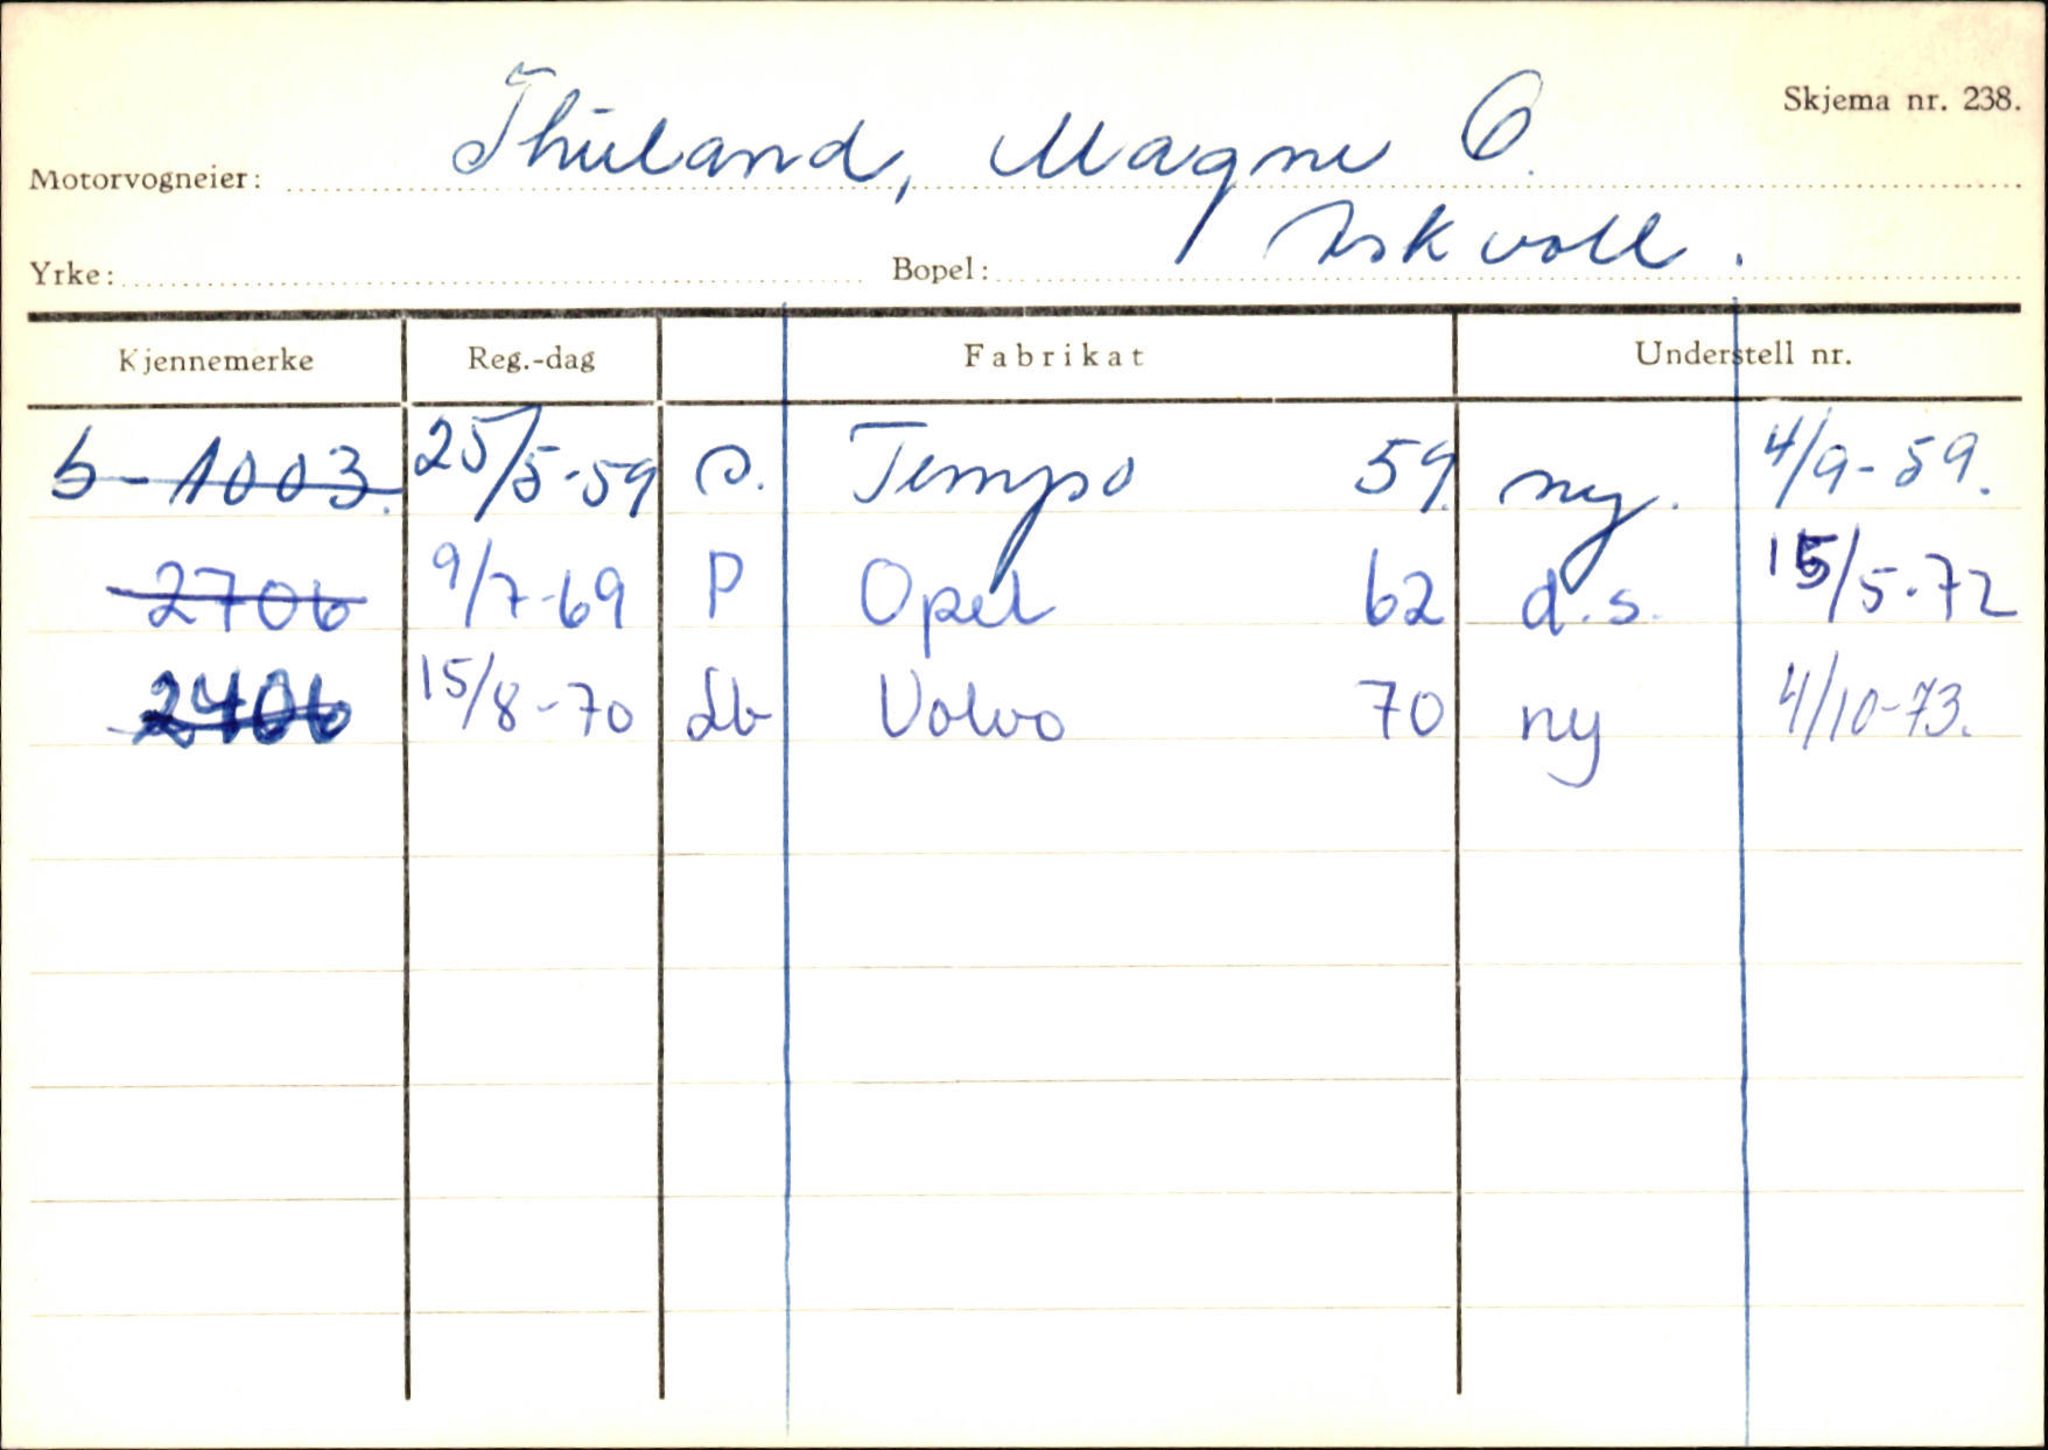 Skjema nr. 238.
Motorvogneier: Thuland, Magne O.
Yrke: Bopel: Askvoll.
Kjennemerke Reg.-dag Fabrikat Understell nr.
S-1003. 25/5-59 s. Tempo 59. ny. 4/9-59.
2706 9/7-69 P Opel 62 d.s. 15/5-72
2406 15/8-70 Lb Volvo 70 ny 4/10-73.